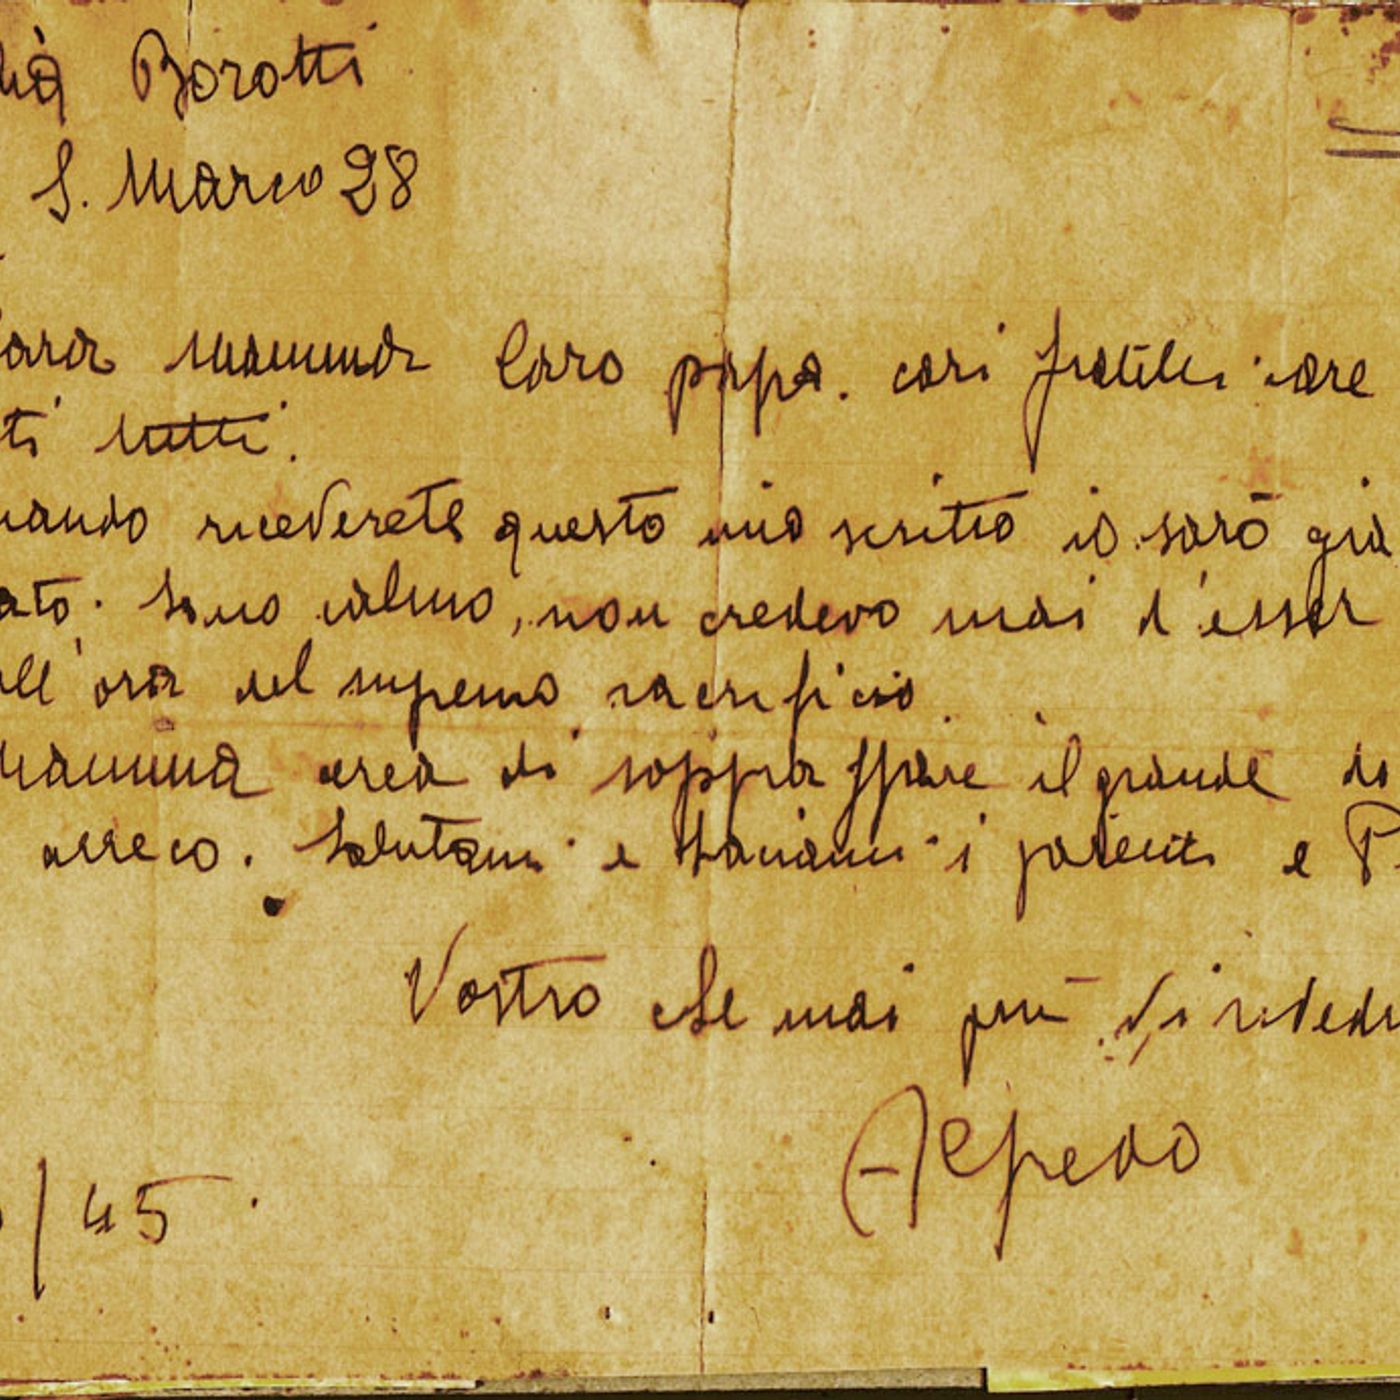 Borotti
S. Marco 28
ara mamma Caro papa. cari fratelli care
ti tutti.
uando riceverete questo mio scritto io sarò già
ato. Sono calmo, non credevo mai d'esser
all'ora del supremo sacrificio.
mamma cerca di soppraffare il grande do
arreco. Salutami e i parenti e P
Vostro che mai più Vi rivedrà
Alfredo
/45.